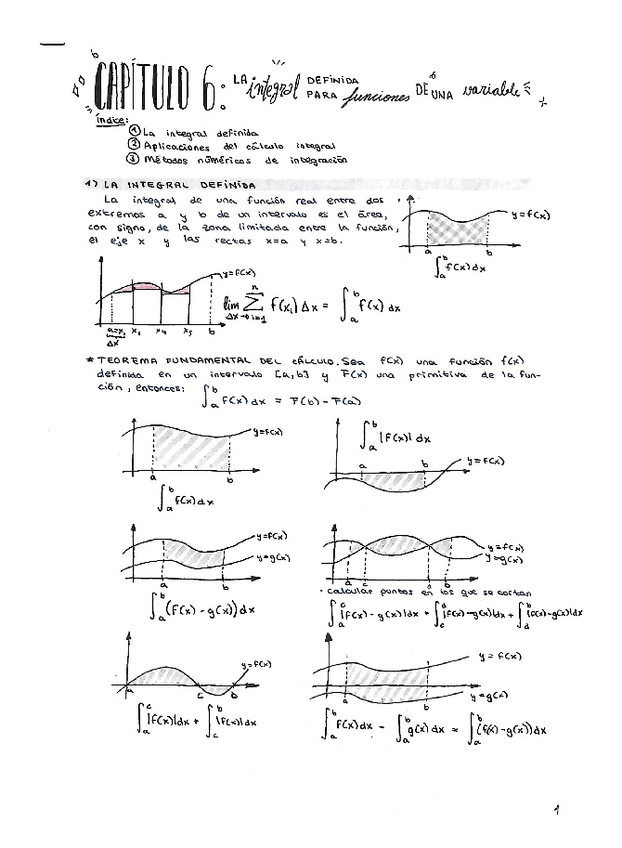 CAPÍTULO 6: LA integral DEFINIDA PARA funciones DE UNA variable
Índice:
① La integral definida
② Aplicaciones del cálculo integral
③ Métodos numéricos de integración
1) LA INTEGRAL DEFINIDA
La integral de una función real entre dos
extremos a y b de un intervalo es el área,
con signo, de la zona limitada entre la función,
el eje x y las rectas x=a y x=b.
y=f(x)
a b
∫_a^b f(x)dx
y=f(x)
a=x₁ x₃ x₄ x₅ b
Δx
lim_{Δx→0} ∑_{i=1}^n f(xᵢ)Δx = ∫_a^b f(x) dx
* TEOREMA FUNDAMENTAL DEL CÁLCULO. Sea f(x) una función f(x)
definida en un intervalo [a,b] y F(x) una primitiva de la fun-
ción, entonces: ∫_a^b f(x)dx = F(b) - F(a)
y=f(x)
a b
∫_a^b f(x)dx
∫_a^b |f(x)|dx
a b y=f(x)
y=f(x)
y=g(x)
a b
∫_a^b (f(x) - g(x))dx
y=f(x)
y=g(x)
a c d b
· calcular puntos en los que se cortan
∫_a^c |f(x) - g(x)|dx + ∫_c^d |f(x) - g(x)|dx + ∫_d^b |f(x) - g(x)|dx
y=f(x)
a c b
∫_a^c |f(x)|dx + ∫_c^b |f(x)|dx
y=f(x)
y=g(x)
a b
∫_a^b f(x)dx - ∫_a^b g(x)dx = ∫_a^b (f(x) - g(x))dx
1